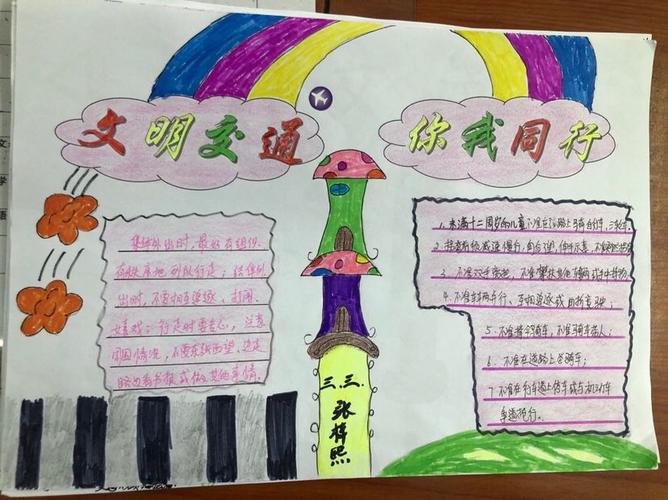 文明交通
你我同行
集体外出时,最好有组织、
有秩序地列队行走;结伴外
出时,不要相互追逐、打闹、
嬉戏;行走时要专心,注意
周围情况,不要东张西望、边走
边看书报或做其他事情。
三.三.
张梓熙
1. 未满十二周岁的儿童不准在道路上骑自行车、三轮车
2. 拐弯前须减速慢行,向后
3. 不准双手离把,不准攀扶其他车辆或手中持物
4. 不准车辆并行、互相追逐或曲折竞驶;
5. 不准骑车带人;
6. 不准在道路上学骑车;
7 不准在行车道上停车或与机动车
争道抢行。